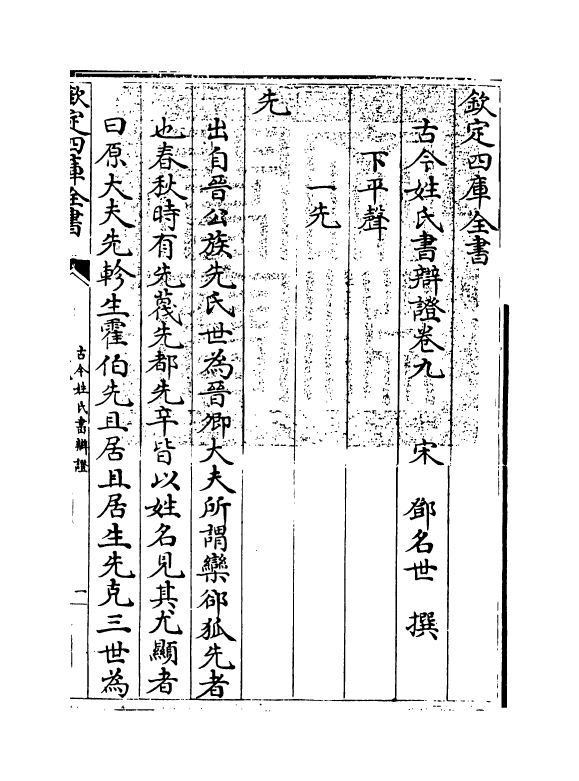 欽定四庫全書
古今姓氏書辯證卷九　宋　鄧名世　撰
下平聲
一先
先
出自晉公族先氏世為晉卿大夫所謂欒郤狐先者
也春秋時有先蔑先都先辛皆以姓名見其尤顯者
曰原大夫先軫生霍伯先且居且居生先克三世為
欽定四庫全書
古今姓氏書辯證